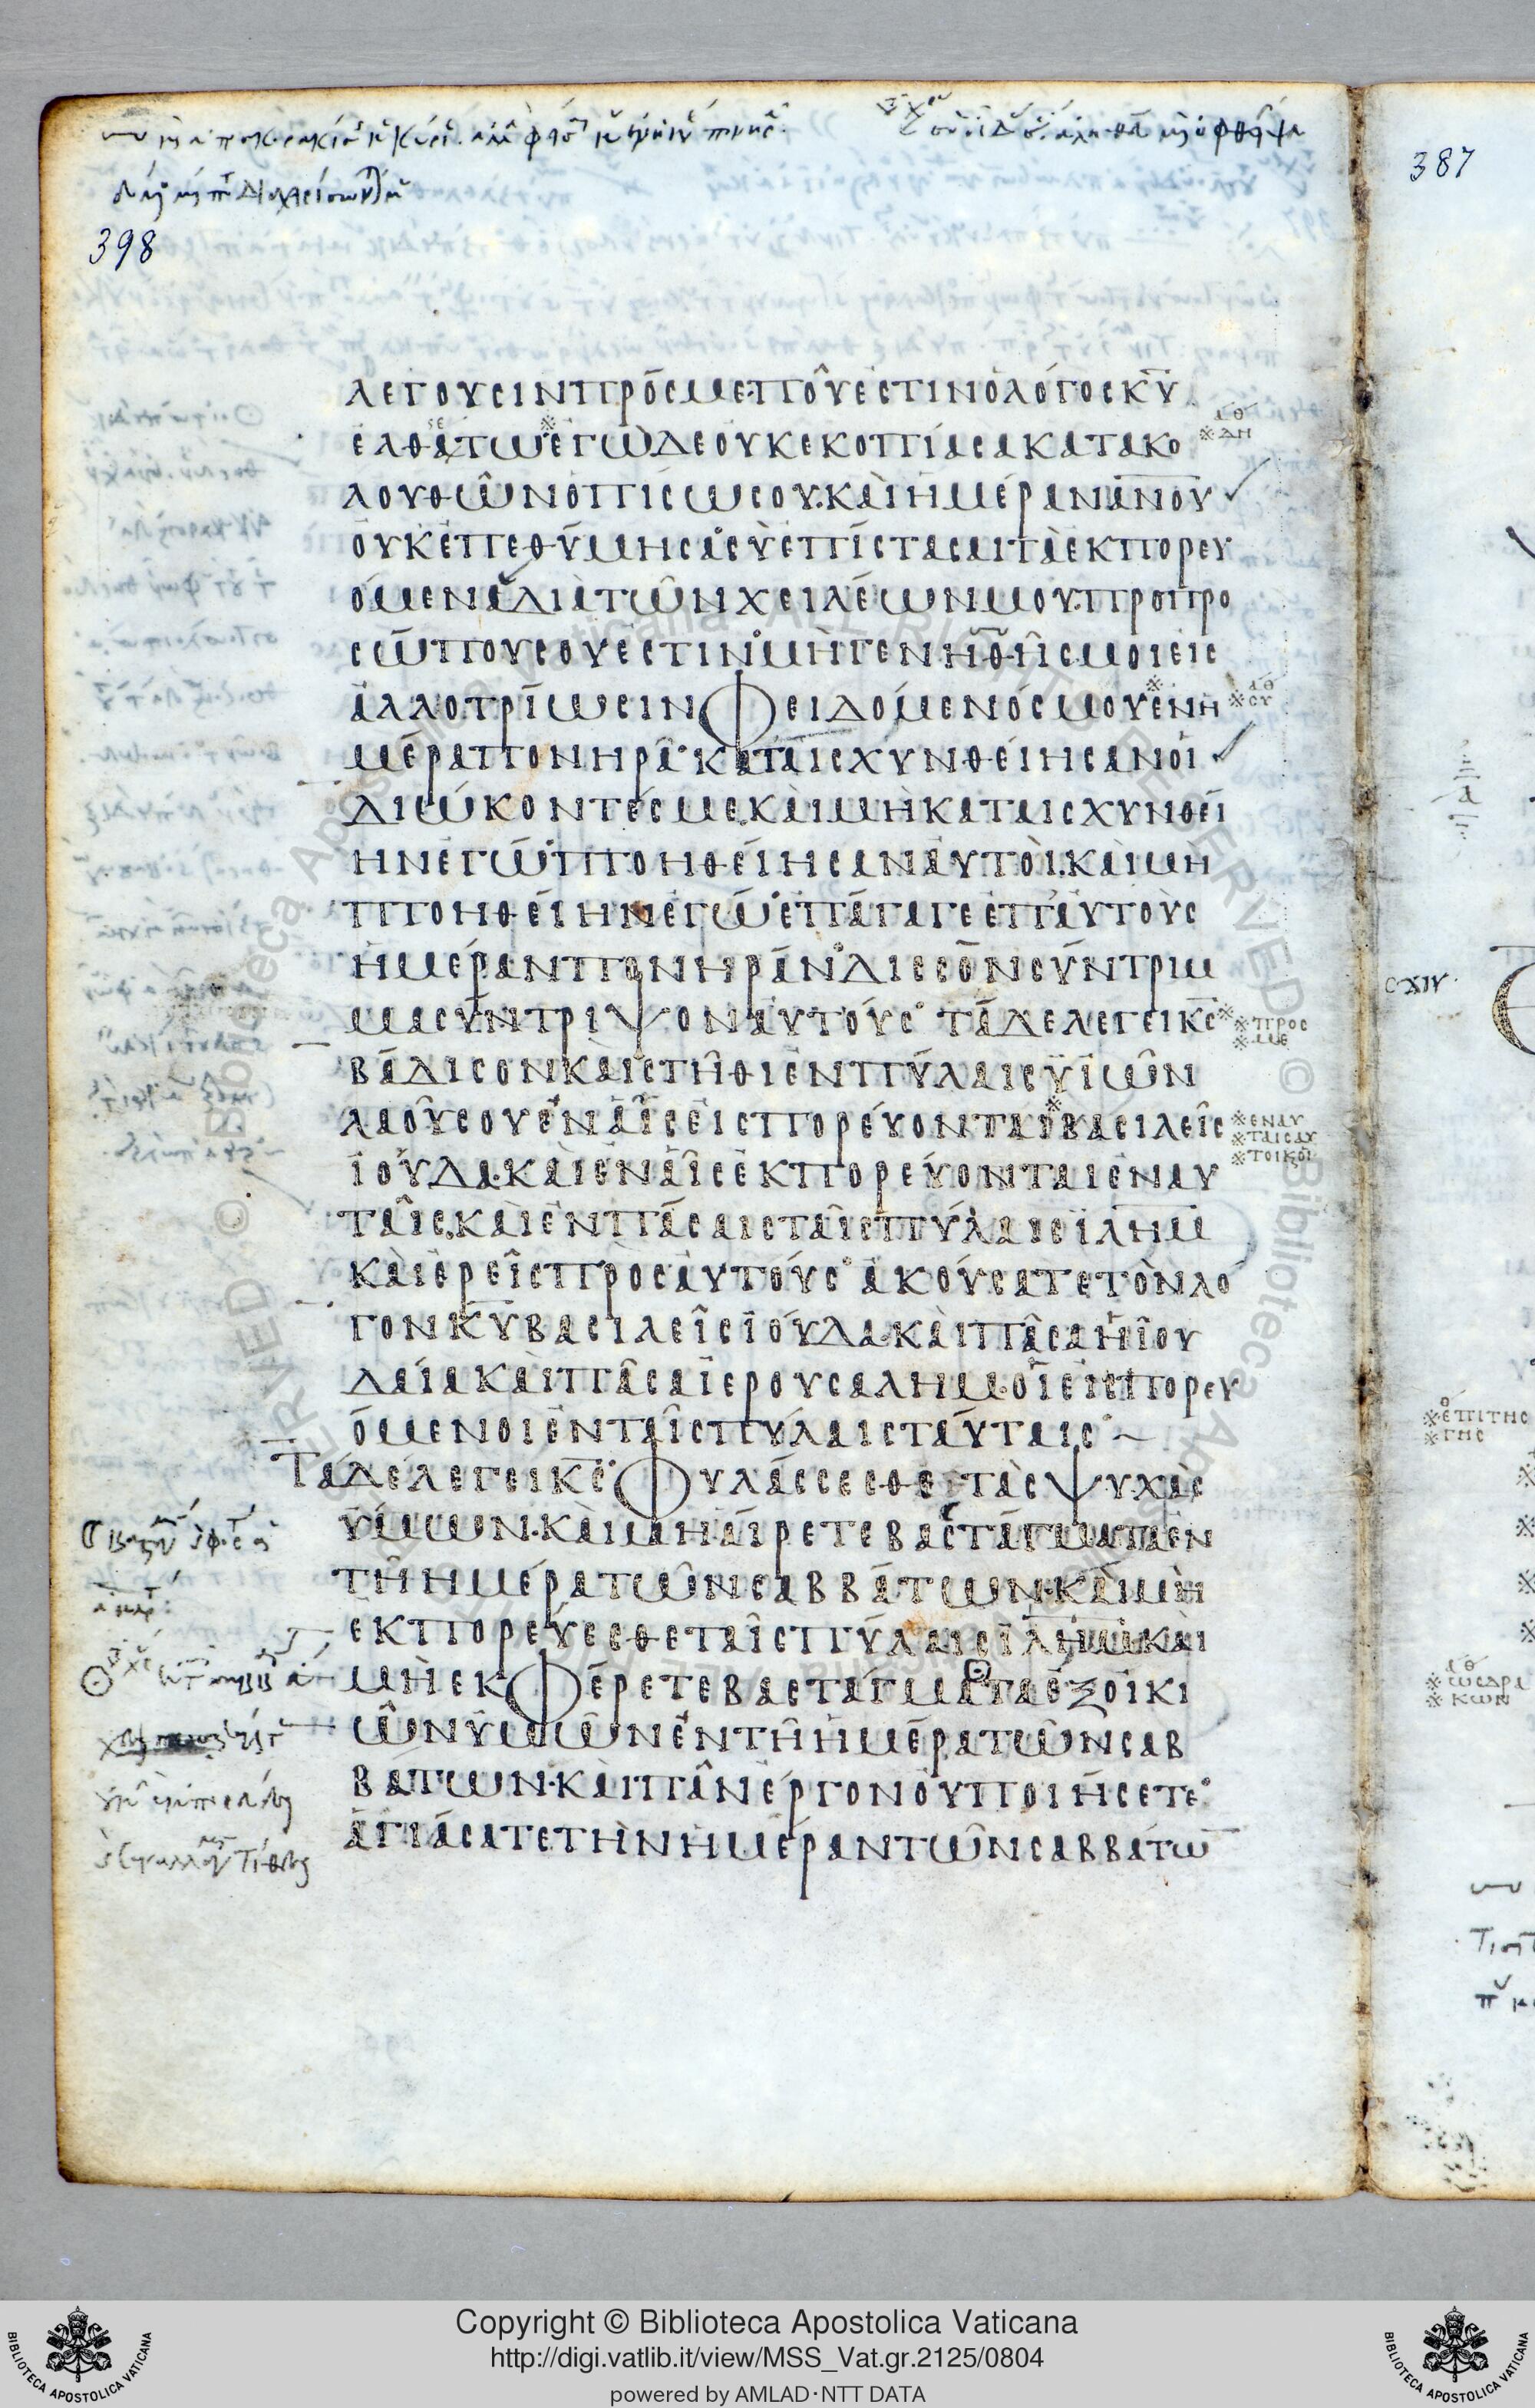 398
387
ΛΕΓΟΥΣΙΝΠΡΟΣΜΕ·ΠΟΥΕΣΤΙΝΟΛΟΓΟΣΚΥ
ΕΛΘΑΤΩ※ΕΓΩΔΕΟΥΚΕΚΟΠΙΑΣΑΚΑΤΑΚΟ
※ΔΗ
ΛΟΥΘΩΝΟΠΙΣΩΣΟΥ·ΚΑΙΗΜΕΡΑΝΑΝΟΥ
ΟΥΚΕΠΕΘΥΜΗΣΑ·ΣΥΕΠΙΣΤΑΣΑΙΤΑΕΚΠΟΡΕΥ
ΟΜΕΝΑΔΙΑΤΩΝΧΕΙΛΕΩΝΜΟΥ·ΠΡΟΠΡΟ
ΣΩΠΟΥΣΟΥΕΣΤΙΝ·ΜΗΓΕΝΗΘΗΣΜΟΙΕΙΣ
ΑΛΛΟΤΡΙΩΣΙΝΦΕΙΔΟΜΕΝΟΣΜΟΥ※ΕΝΗ
※ΣΥ
ΜΕΡΑΠΟΝΗΡΑ·ΚΑΤΑΙΣΧΥΝΘΕΙΗΣΑΝΟΙ
ΔΙΩΚΟΝΤΕΣΜΕΚΑΙΜΗΚΑΤΑΙΣΧΥΝΘΕΙ
ΗΝΕΓΩ·ΠΤΟΗΘΕΙΗΣΑΝΑΥΤΟΙ·ΚΑΙΜΗ
ΠΤΟΗΘΕΙΗΝΕΓΩ·ΕΠΑΓΑΓΕΕΠΑΥΤΟΥΣ
ΗΜΕΡΑΝΠΟΝΗΡΑΝ·ΔΙΣΣΟΝΣΥΝΤΡΙΜ
ΜΑΣΥΝΤΡΙΨΟΝΑΥΤΟΥΣ·ΤΑΔΕΛΕΓΕΙΚΣ※
※ΠΡΟΣ
※ΜΕ
ΒΑΔΙΣΟΝΚΑΙΣΤΗΘΙΕΝΠΥΛΑΙΣΥΙΩΝ
ΛΑΟΥΣΟΥΕΝΑΙΣΕΙΣΠΟΡΕΥΟΝΤΑΙ※ΒΑΣΙΛΕΙΣ
※ΕΝΑΥ
※ΤΑΙΣΑΥ
※ΤΟΙΚΟΙ
ΙΟΥΔΑ·ΚΑΙΕΝΑΙΣΕΚΠΟΡΕΥΟΝΤΑΙΕΝΑΥ
ΤΑΙΣ·ΚΑΙΕΝΠΑΣΑΙΣΤΑΙΣΠΥΛΑΙΣΙΛΗΜ
ΚΑΙΕΡΕΙΣΠΡΟΣΑΥΤΟΥΣ·ΑΚΟΥΣΑΤΕΤΟΝΛΟ
ΓΟΝΚΥΒΑΣΙΛΕΙΣΙΟΥΔΑ·ΚΑΙΠΑΣΑΗΙΟΥ
ΔΑΙΑΚΑΙΠΑΣΑΙΕΡΟΥΣΑΛΗΜ·ΟΙΕΙΣΠΟΡΕΥ
ΟΜΕΝΟΙΕΝΤΑΙΣΠΥΛΑΙΣΤΑΥΤΑΙΣ·~
ΤΑΔΕΛΕΓΕΙΚΣ·ΦΥΛΑΣΣΕΣΘΕΤΑΣΨΥΧΑΣ
ΥΜΩΝ·ΚΑΙΜΗΑΙΡΕΤΕΒΑΣΤΑΓΜΑΤΑΕΝ
ΤΗΗΜΕΡΑΤΩΝΣΑΒΒΑΤΩΝ·ΚΑΙΜΗ
ΕΚΠΟΡΕΥΕΣΘΕΤΑΙΣΠΥΛΑΙΣΙΛΗΜ·ΚΑΙ
ΜΗΕΚΦΕΡΕΤΕΒΑΣΤΑΓΜΑΤΑΕΞΟΙΚΙ
ΩΝΥΜΩΝΕΝΤΗΗΜΕΡΑΤΩΝΣΑΒ
ΒΑΤΩΝ·ΚΑΙΠΑΝΕΡΓΟΝΟΥΠΟΙΗΣΕΤΕ·
ΑΓΙΑΣΑΤΕΤΗΝΗΜΕΡΑΝΤΩΝΣΑΒΒΑΤΩ
CXIV
※ΕΠΙΤΗΣ
※ΓΗΣ
※ΩΣΔΡΑ
※ΚΩΝ
Copyright © Biblioteca Apostolica Vaticana
http://digi.vatlib.it/view/MSS_Vat.gr.2125/0804
powered by AMLAD·NTT DATA
BIBLIOTECA APOSTOLICA VATICANA
BIBLIOTECA APOSTOLICA VATICANA